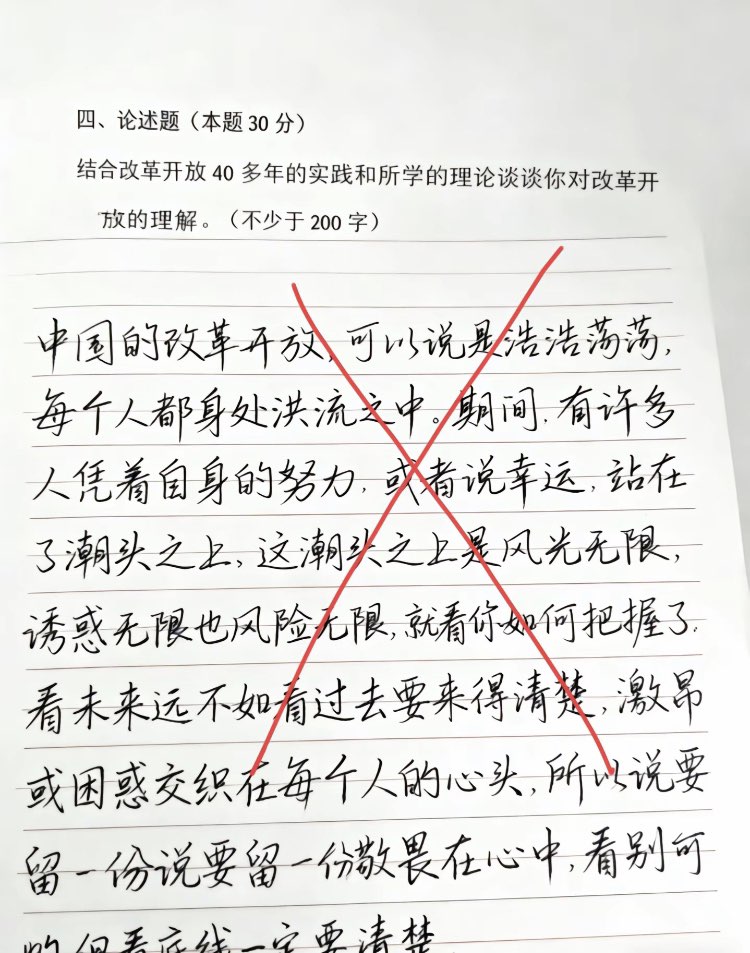 四、论述题（本题30分）
结合改革开放40多年的实践和所学的理论谈谈你对改革开
放的理解。（不少于200字）
中国的改革开放，可以说是浩浩荡荡，
每个人都身处洪流之中。期间，有许多
人凭着自身的努力，或者说幸运，站在
了潮头之上，这潮头之上是风光无限，
诱惑无限也风险无限，就看你如何把握了.
看未来远不如看过去要来得清楚，激昂
或困惑交织在每个人的心头，所以说要
留一份说要留一份敬畏在心中，看别可
底线一定要清楚